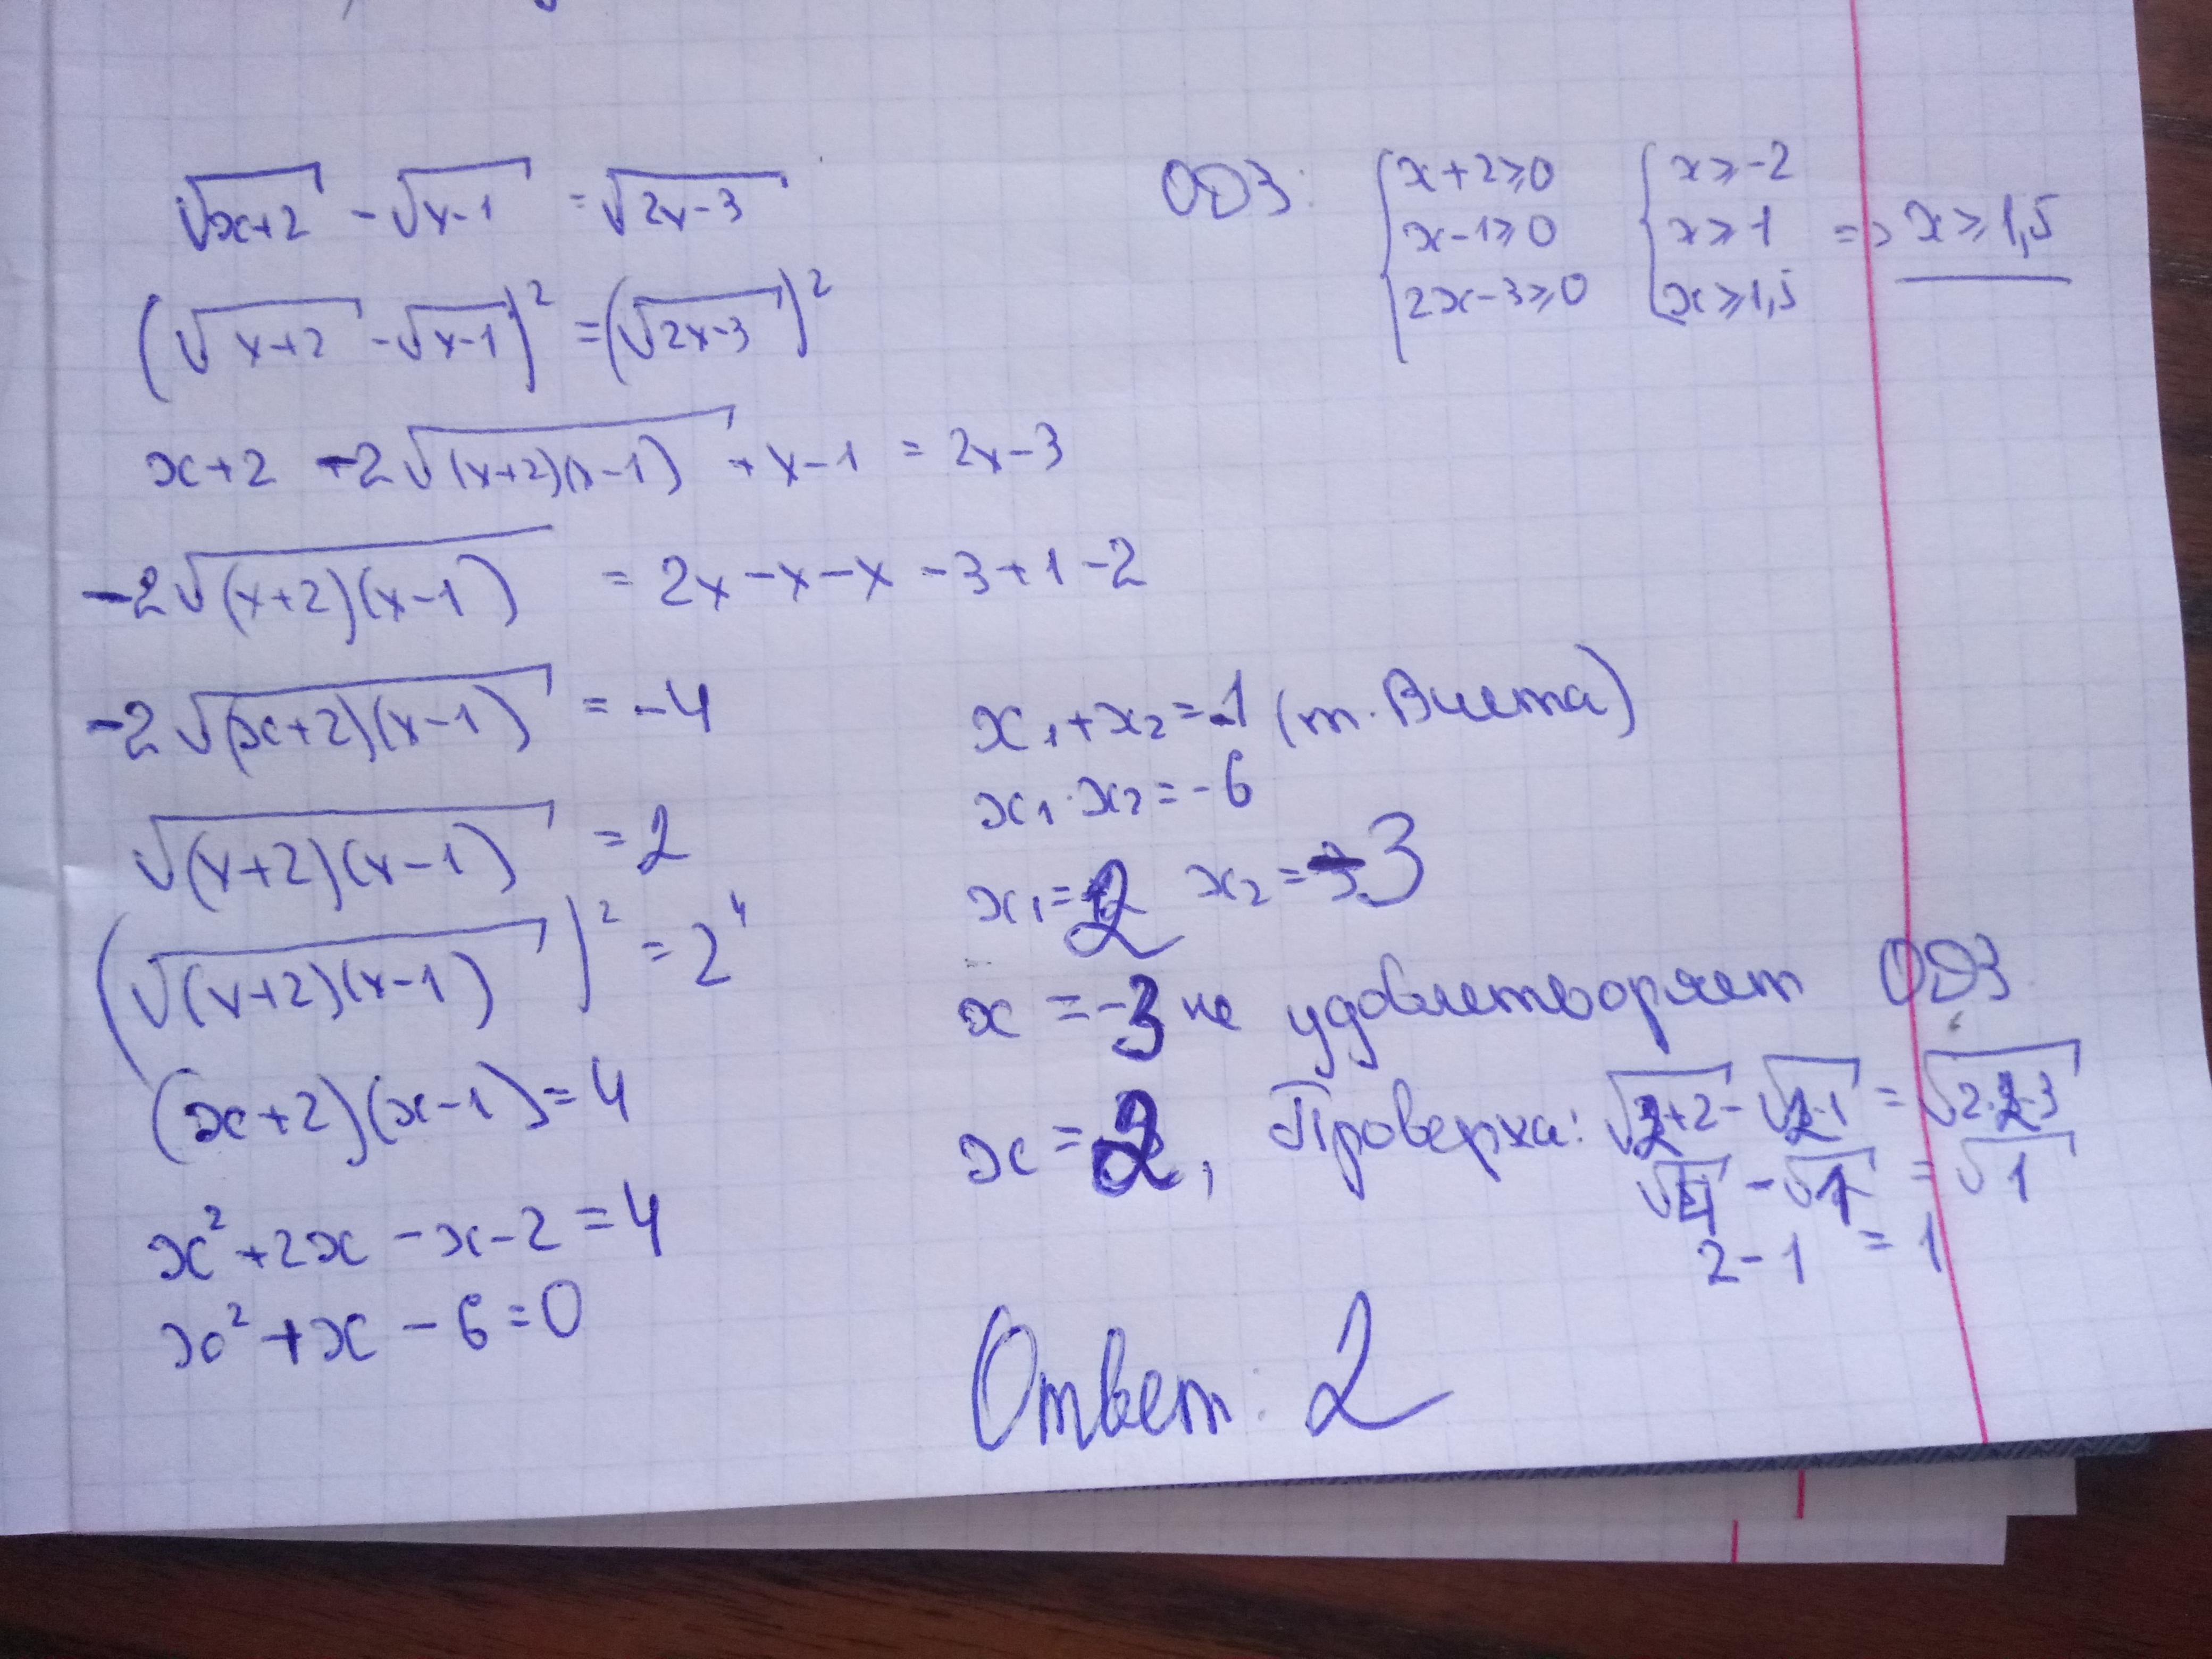 √(x+2) - √(x-1) = √(2x-3)
ОДЗ: { x+2≥0 { x≥-2
x-1≥0 x≥1 => x≥1,5
2x-3≥0 x≥1,5
(√(x+2) - √(x-1))² = (√(2x-3))²
x+2 -2√((x+2)(x-1)) + x-1 = 2x-3
-2√((x+2)(x-1)) = 2x-x-x-3+1-2
-2√((x+2)(x-1)) = -4
√((x+2)(x-1)) = 2
(√((x+2)(x-1)))² = 2⁴
(x+2)(x-1)=4
x²+2x-x-2=4
x²+x-6=0
x₁+x₂=-1 (т. Виета)
x₁·x₂=-6
x₁=2 x₂=-3
x=-3 не удовлетворяет ОДЗ
x=2, Проверка: √(2+2) - √(2-1) = √(2·2-3)
√4 - √1 = √1
2-1 = 1
Ответ: 2